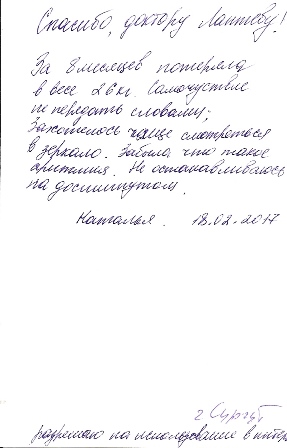 Спасибо, доктору Лаптеву!
За 8 месяцев потеряла
в весе 26 кг. Самочуствие
не передать словами;
Захотелось чаще смотреться
в зеркало. Забыла что такое
аритмия. Не останавливаюсь
на достигнутом.
Наталья. 18.02.2017
г Сургут
разрешаю на использование в интер